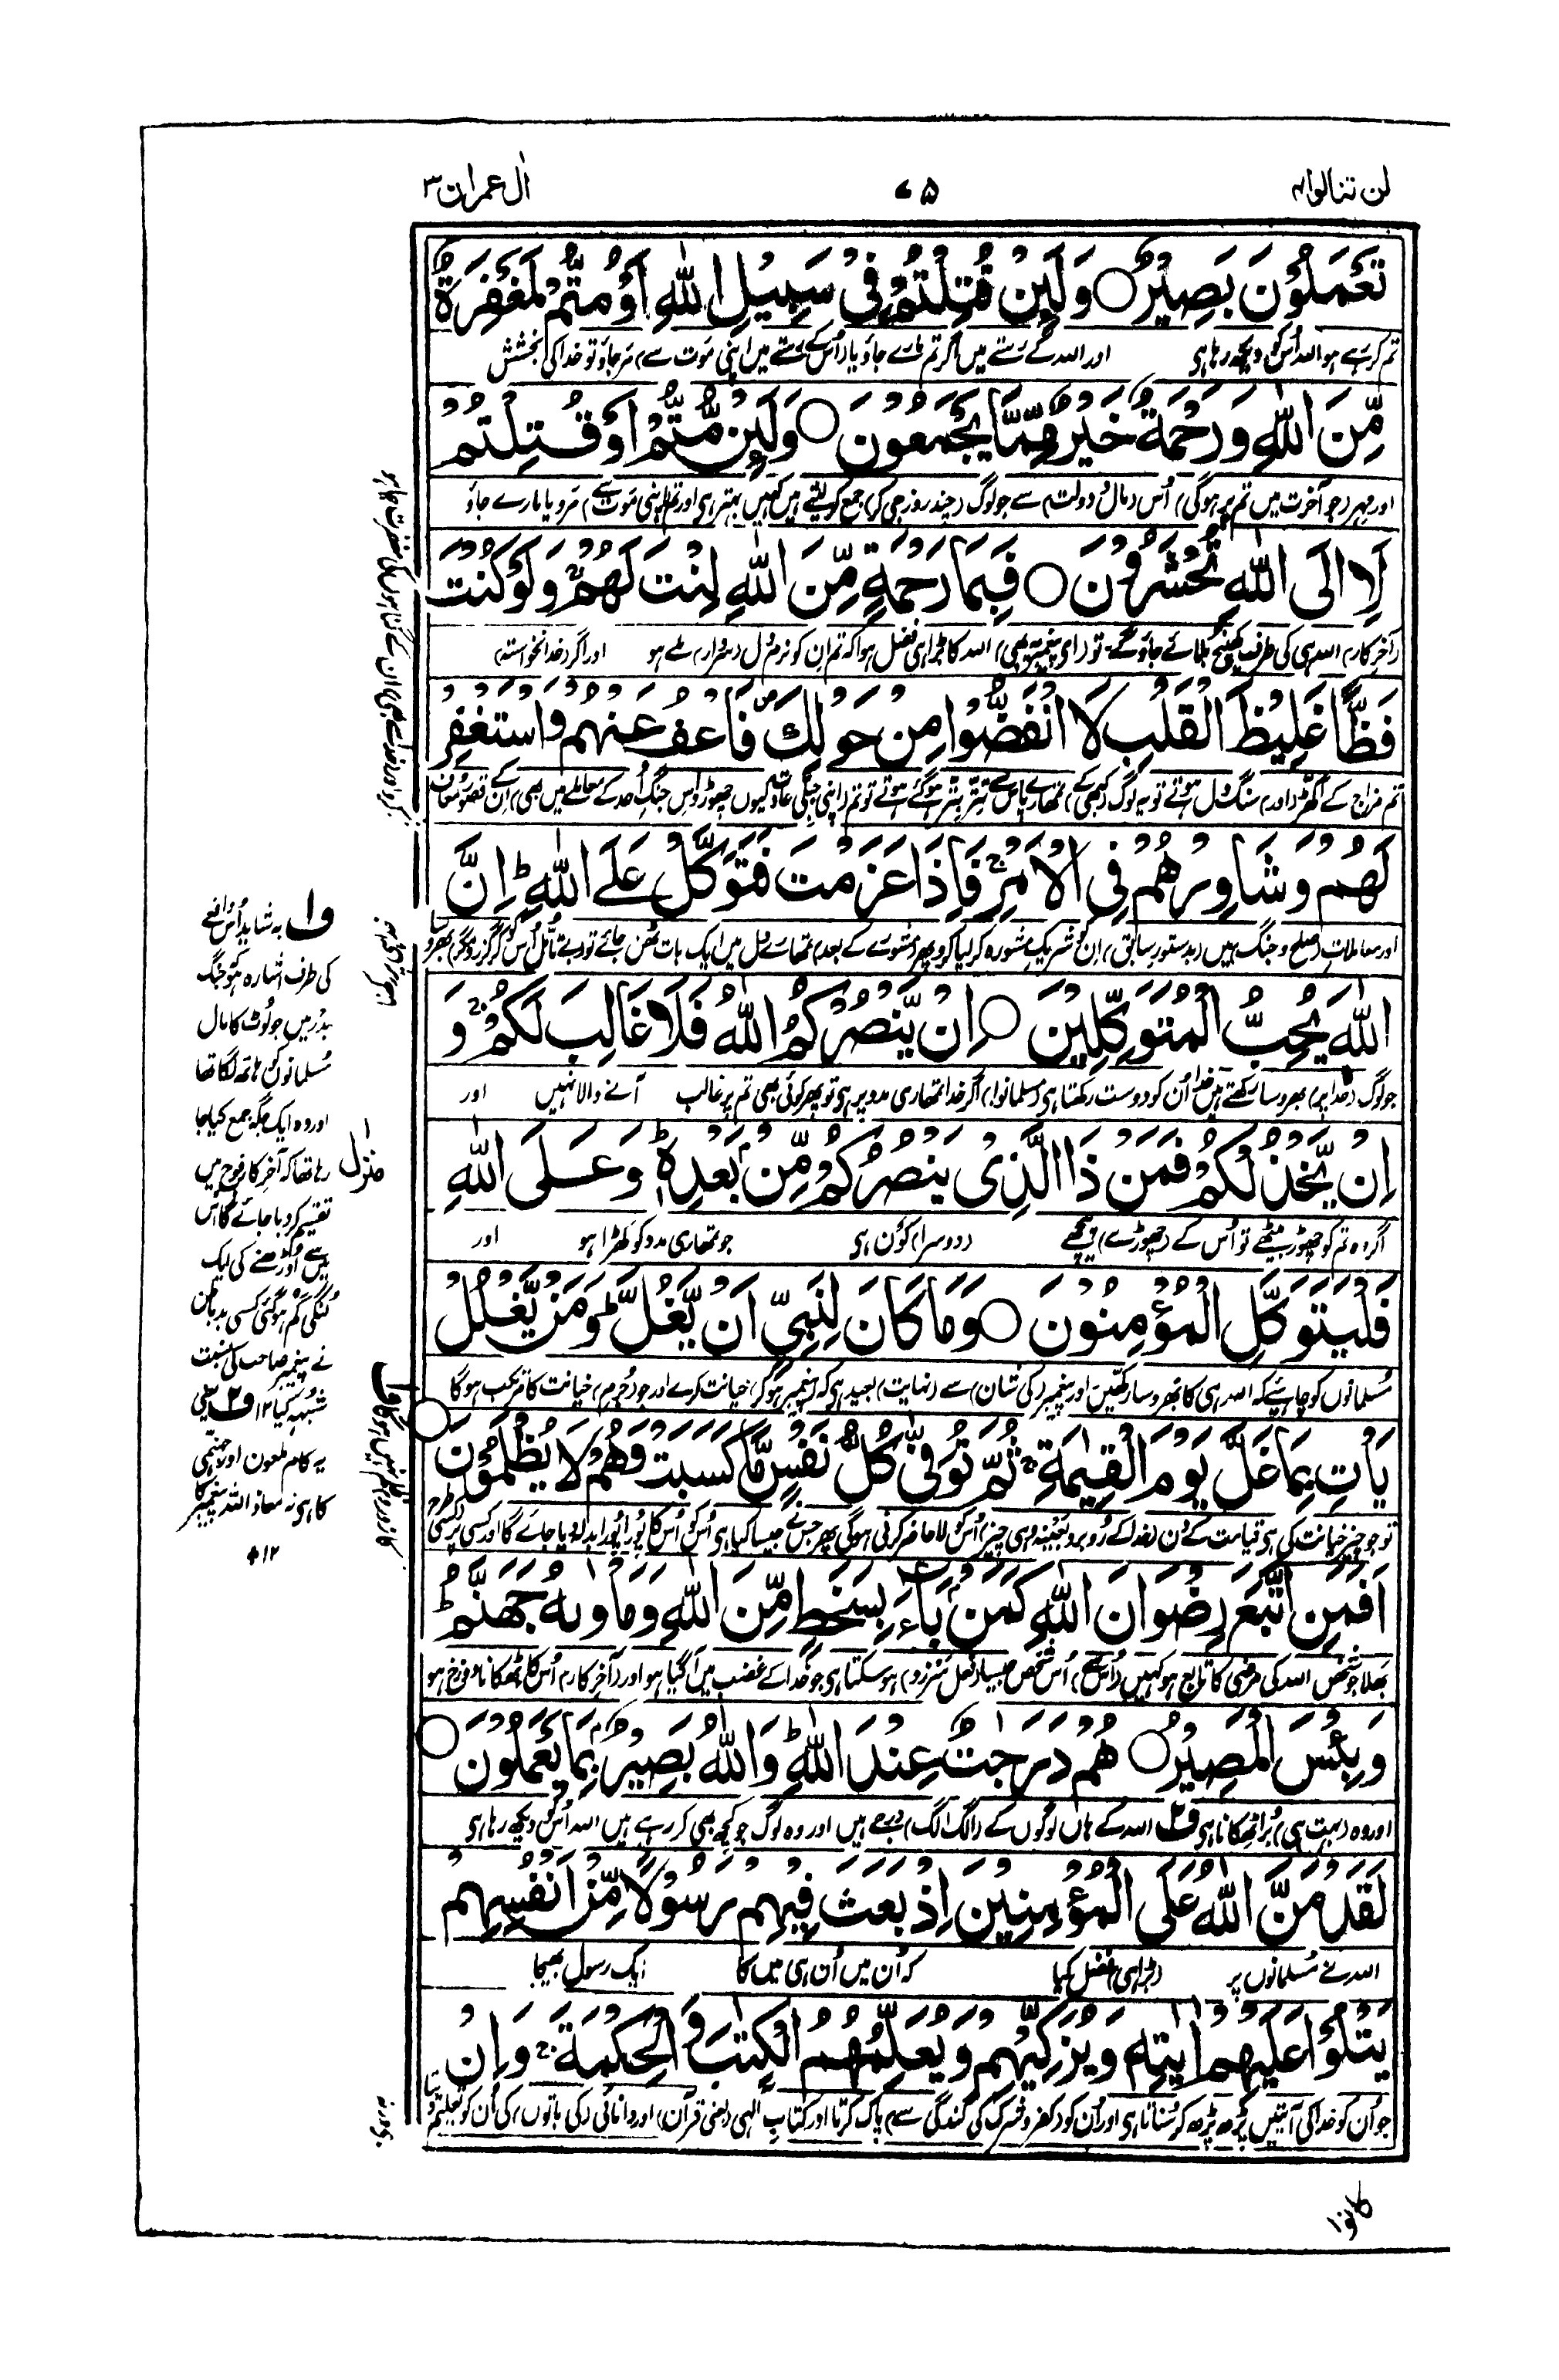 لن تنالوا۴
۷۵
اٰل عمران۳
تَعْمَلُوْنَ بَصِيْرٌ ○ وَلَئِنْ قُتِلْتُمْ فِيْ سَبِيْلِ اللّٰهِ اَوْ مُتُّمْ لَمَغْفِرَةٌ
تم کر رہے ہو اللہ اُس کو دیکھ رہا ہی اور اللہ کے رستے میں اگر تم مارے جاؤ یا (اُس کے رستے میں اپنی موت سے) مر جاؤ تو خدا کی بخشش
مِّنَ اللّٰهِ وَرَحْمَةٌ خَيْرٌ مِّمَّا يَجْمَعُوْنَ ○ وَلَئِنْ مُّتُّمْ اَوْ قُتِلْتُمْ
اور مہر (جو آخرت میں تم پر ہوگی) اُس (مال و دولت) سے جو لوگ (چند روز جی کر) جمع کر لیتے ہیں کہیں بہتر ہی اور تم (اپنی موت سے) مرو یا مارے جاؤ
لَا۟اِلَى اللّٰهِ تُحْشَرُوْنَ ○ فَبِمَا رَحْمَةٍ مِّنَ اللّٰهِ لِنْتَ لَهُمْ وَلَوْ كُنْتَ
(آخر کار) اللہ ہی کی طرف کھینچ بلائے جاؤ گے۔ تو (ای پیغمبر یہ بھی) اللہ کا بڑا ہی فضل ہوا کہ تم ان کو نرم دل (سردار) ملے ہو اور اگر (خدانخواستہ)
فَظًّا غَلِيْظَ الْقَلْبِ لَا انْفَضُّوْا مِنْ حَوْلِكَ فَاعْفُ عَنْهُمْ وَاسْتَغْفِرْ
تم مزاج کے اکھڑ (اور) سنگ دل ہوتے تو یہ لوگ (کبھی کے) تمھارے پاس سے تتر بتر ہو گئے ہوتے تو تم (اپنی جبلی عادت کیوں چھوڑو اس جنگ اُحد کے معاملے میں بھی) ان کے قصور معاف
لَهُمْ وَشَاوِرْهُمْ فِي الْاَمْرِ فَاِذَا عَزَمْتَ فَتَوَكَّلْ عَلَى اللّٰهِ اِنَّ
اور معاملات (صلح و جنگ) میں (بدستور سابق) ان کو شریک مشورہ کر لیا کرو پھر (مشورے کے بعد) تمھارے دل میں ایک بات ٹھن جائے تو (بے تامل اُس کو کر گزرو مگر) بھروسا
اللّٰهَ يُحِبُّ الْمُتَوَكِّلِيْنَ ○ اِنْ يَّنْصُرْكُمُ اللّٰهُ فَلَا غَالِبَ لَكُمْ وَ
جو لوگ (خدا پر) بھروسا رکھتے ہیں خدا اُن کو دوست رکھتا ہی (مسلمانو!) اگر خدا تمھاری مدد پر ہی تو پھر کوئی بھی تم پر غالب آنے والا نہیں اور
اِنْ يَّخْذُلْكُمْ فَمَنْ ذَا الَّذِيْ يَنْصُرُكُمْ مِّنْ بَعْدِهٖ وَعَلَى اللّٰهِ
اگر وہ تم کو چھوڑ بیٹھے تو اُس کے (چھوڑے) پیچھے (دوسرا) کون ہی جو تمھاری مدد کو کھڑا ہو اور
فَلْيَتَوَكَّلِ الْمُؤْمِنُوْنَ ○ وَمَا كَانَ لِنَبِيٍّ اَنْ يَّغُلَّ وَمَنْ يَّغْلُلْ
مسلمانوں کو چاہیے کہ اللہ ہی کا بھروسا رکھیں اور پیغمبر (کی شان) سے (نہایت) بعید ہی کہ (پیغمبر ہو کر) خیانت کرے اور جو (جُرم) خیانت کا مرتکب ہوگا
يَاْتِ بِمَا غَلَّ يَوْمَ الْقِيٰمَةِ ثُمَّ تُوَفّٰى كُلُّ نَفْسٍ مَّا كَسَبَتْ وَهُمْ لَا يُظْلَمُوْنَ ○
تو جو چیز خیانت کی ہی قیامت کے دن (خدا کے روبرو بعینہ وہی چیز) اُس کو لا حاضر کرنی ہوگی پھر جس نے جیسا کیا ہی اُس کو اُس کا پورا پورا بدلہ دیا جائے گا اور کسی پر کسی طرح
اَفَمَنِ اتَّبَعَ رِضْوَانَ اللّٰهِ كَمَنْ بَآءَ بِسَخَطٍ مِّنَ اللّٰهِ وَمَاْوٰىهُ جَهَنَّمُ
بھلا جو شخص اللہ کی مرضی کا تابع ہو کہیں (اُس سے) اُس شخص جیسا (فعل سرزد) ہو سکتا ہی جو خدا کے غضب میں آگیا ہو اور (آخر کار) اُس کا ٹھکانا دوزخ ہو
وَبِئْسَ الْمَصِيْرُ ○ هُمْ دَرَجٰتٌ عِنْدَ اللّٰهِ وَاللّٰهُ بَصِيْرٌ بِمَا يَعْمَلُوْنَ ○
اور وہ (بہت ہی) بُرا ٹھکانا ہی ف۲ اللہ کے ہاں لوگوں کے (الگ الگ) درجے ہیں اور وہ لوگ جو کچھ بھی کر رہے ہیں اللہ اُس کو دیکھ رہا ہی
لَقَدْ مَنَّ اللّٰهُ عَلَى الْمُؤْمِنِيْنَ اِذْ بَعَثَ فِيْهِمْ رَسُوْلًا مِّنْ اَنْفُسِهِمْ
اللہ نے مسلمانوں پر (بڑا ہی) فضل کیا کہ اُن میں اُن ہی میں کا ایک رسول بھیجا
يَتْلُوْا عَلَيْهِمْ اٰيٰتِهٖ وَيُزَكِّيْهِمْ وَيُعَلِّمُهُمُ الْكِتٰبَ وَالْحِكْمَةَ وَاِنْ
جو اُن کو خدا کی آیتیں پڑھ پڑھ کر سناتا ہی اور اُن کو (کفر و شرک کی گندگی سے) پاک کرتا اور کتاب الٰہی (یعنی قرآن) اور دانائی (کی باتوں) کی اُن کو تعلیم دیتا
ف۱ یہ شاید اُس واقعے
کی طرف اشارہ ہو کہ جنگ
بدر میں جو لوٹ کا مال
مسلمانوں کے ہاتھ لگا تھا
اور وہ ایک جگہ جمع کیا جا
رہا تھا کہ آخر کار فوج میں
تقسیم کر دیا جائے گا اُس
میں سے اوڑھنے کی ایک
لنگی گم ہو گئی کسی بدباطن
نے پیغمبر صاحب کی نسبت
شبہہ کیا ۱۲ ف۲ یعنی
یہ کام ملعون اور جہنمی
کا ہی نہ معاذ اللہ پیغمبر کا
۱۲
منزل ۱
کانوا